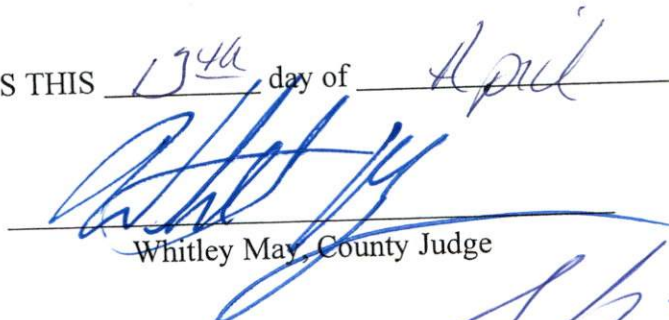 S THIS 13th day of April
Whitley May, County Judge